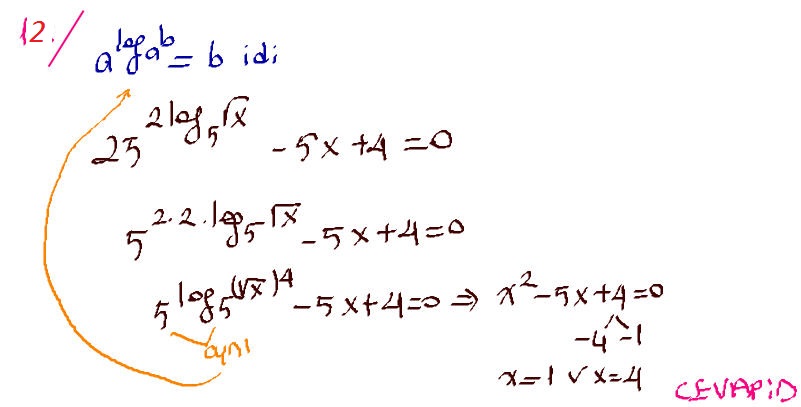 12./
a^log_a b = b idi
25^2log_5 √x - 5x + 4 = 0
5^2.2.log_5 √x - 5x + 4 = 0
5^log_5 (√x)^4 - 5x + 4 = 0 ⇒ x² - 5x + 4 = 0
aynı
-4 -1
x = 1 ∨ x = 4
CEVAP:D